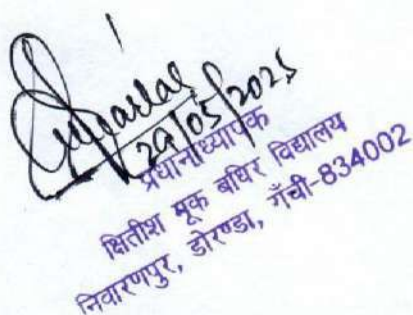 29/05/2025
प्रधानाध्यापक
क्षितीश मूक बधिर विद्यालय
निवारणपुर, डोरण्डा, राँची-834002